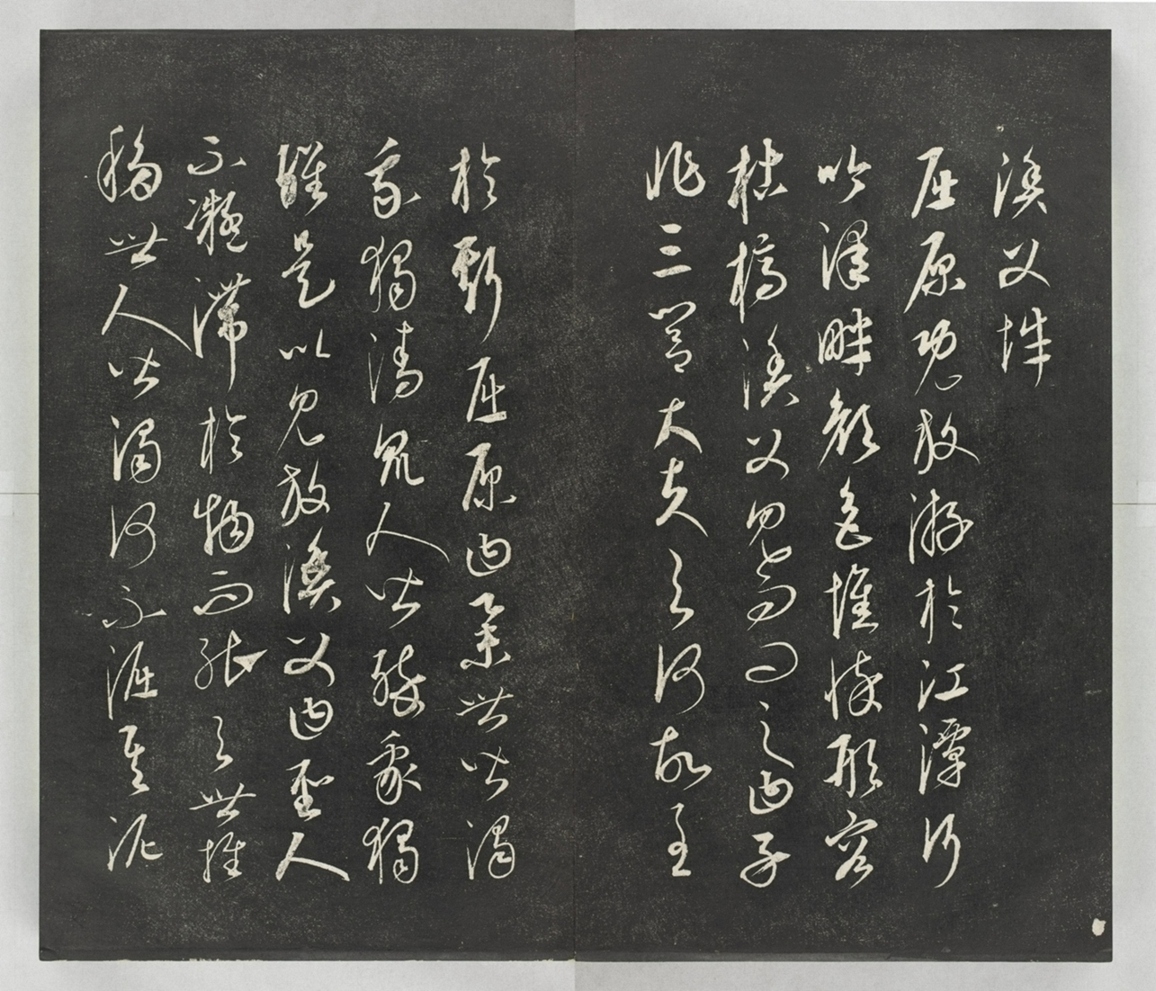 漁父
屈原既放游於江潭行
吟澤畔顏色憔悴形容
枯槁漁父見而問之曰子
非三閭大夫與何故至
於斯屈原曰舉世皆濁
我獨清眾人皆醉我獨
醒是以見放漁父曰聖人
不凝滯於物而能與世推
移世人皆濁何不淈其泥